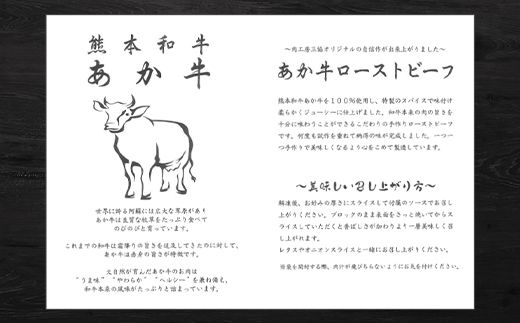 熊本和牛
あか牛
世界に誇る阿蘇には広大な草原があり
あか牛は良質な牧草をたっぷり食べて
のびのびと育っています。
これまでの和牛は霜降りの旨さを追及してきたのに対して、
あか牛は赤身の旨さが特徴です。
大自然が育んだあか牛のお肉は
“うま味” “やわらか” “ヘルシー”を兼ね備え、
和牛本来の風味がたっぷりと詰まっています。
～肉工房三協オリジナルの自信作が出来上がりました～
あか牛ローストビーフ
熊本和牛あか牛を１００％使用し、特製のスパイスで味付け
柔らかくジューシーに仕上げました。和牛本来の肉の旨さを
十分に味わうことができるこだわりの手作りローストビーフ
です。何度も試作を重ねて納得の味が完成しました。一つ一
つ手作りで美味しくなるよう心をこめて製造しています。
～美味しい召し上がり方～
解凍後、お好みの厚さにスライスして付属のソースでお召し
上がりください。ブロックのまま表面をさっと焼いてからス
ライスしていただくと香ばしさが加わりより一層美味しく召
し上がれます。
レタスやオニオンスライスと一緒にお召し上がりください。
※袋を開封する際、肉汁が飛びちらないようにお気を付けください。